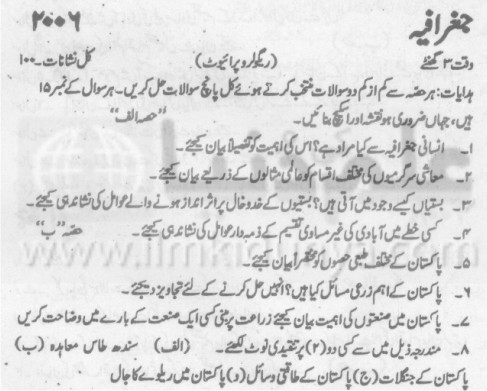 جغرافیہ ۲۰۰۶
وقت ۳ گھنٹے (ریگولر و پرائیوٹ) کل نشانات ۔۱۰۰
ہدایات: ہر حصّہ سے کم از کم دو سوالات منتخب کرتے ہوئے کل پانچ سوالات حل کریں۔ ہر سوال کے نمبر ۱۵
ہیں، جہاں ضروری ہو نقشہ اور اسکیچ بنائیں۔ "حصہ الف"
۱۔ انسانی جغرافیہ سے کیا مراد ہے؟ اس کی اہمیت کو تفصیلاً بیان کیجئے۔
۲۔ معاشی سرگرمیوں کی مختلف اقسام کو عالمی مثالوں کے ذریعے بیان کیجئے۔
۳۔ بستیاں کیسے وجود میں آتی ہیں؟ بستیوں کے خدوخال پر اثر انداز ہونے والے عوامل کی نشاندہی کیجئے۔
۴۔ کسی خطے میں آبادی کی غیر مساوی تقسیم کے ذمہ دار عوامل کی نشاندہی کیجئے۔ حصّہ "ب"
۵۔ پاکستان کے مختلف طبعی حصوں کو مختصراً بیان کیجئے۔
۶۔ پاکستان کے اہم زرعی مسائل کیا ہیں؟ انہیں حل کرنے کے لئے تجاویز دیجئے۔
۷۔ پاکستان میں صنعتوں کی اہمیت بیان کیجئے زراعت پر مبنی کسی ایک صنعت کے بارے میں وضاحت کریں
۸۔ مندرجہ ذیل میں سے کسی دو (۲) پر تنقیدی نوٹ لکھئے۔ (الف) سندھ طاس معاہدہ (ب)
پاکستان کے جنگلات (ج) پاکستان کے طاقتی وسائل (د) پاکستان میں ریلوے کا جال